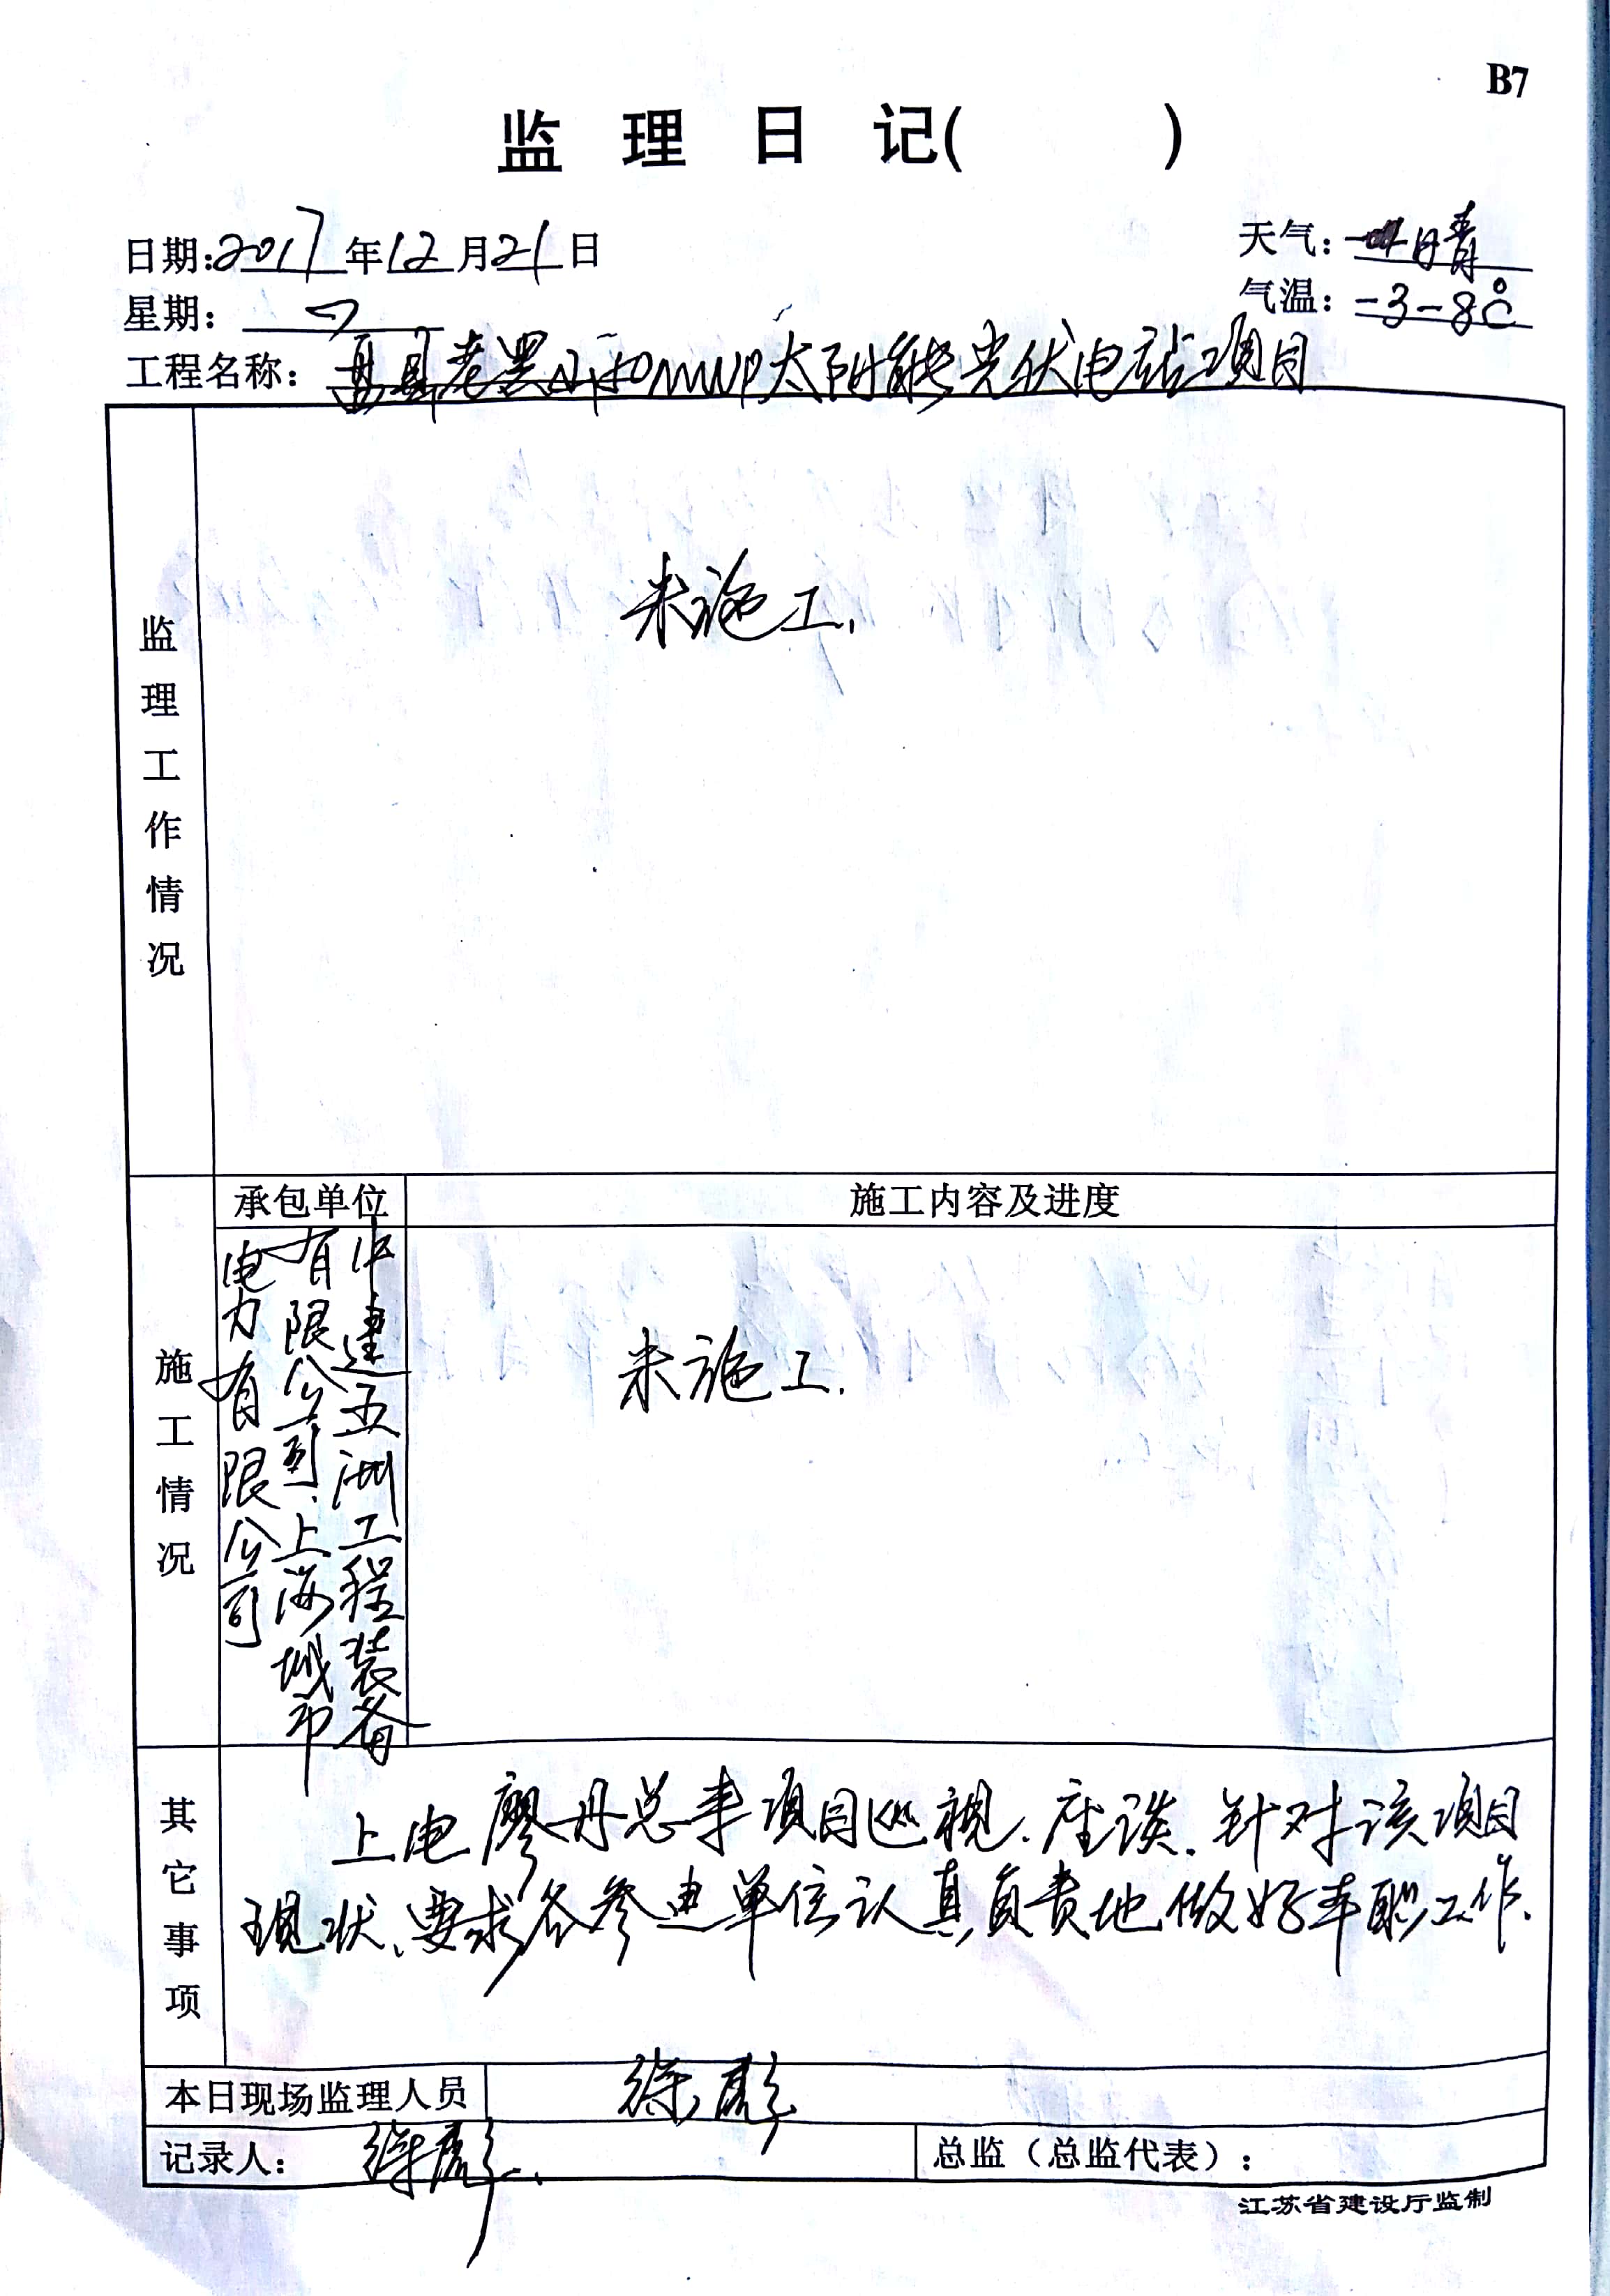 B7
监理日记( )
日期:2017年12月21日 天气:晴
星期:四 气温:-3-8℃
工程名称:县老黑山40MWP太阳能光伏电站项目
监理工作情况
未施工.
承包单位 施工内容及进度
施工情况
中建五洲工程装备
有限公司.上海城市
电力有限公司
未施工.
其它事项
上电廖丹总来项目巡视.座谈.针对该项目
现状、要求各参建单位认真负责地做好本职工作.
本日现场监理人员 徐彪
记录人: 徐彪 总监(总监代表):
江苏省建设厅监制